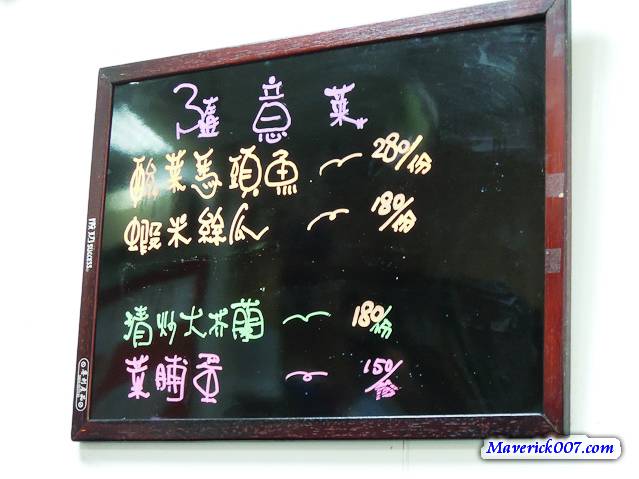 隨意菜
酸菜馬頭魚 ～ 280/份
蝦米絲瓜 ～ 180/份
清炒大芥蘭 ～ 180/份
菜脯蛋 ～ 150/
SUCCESS.
Maverick007.com